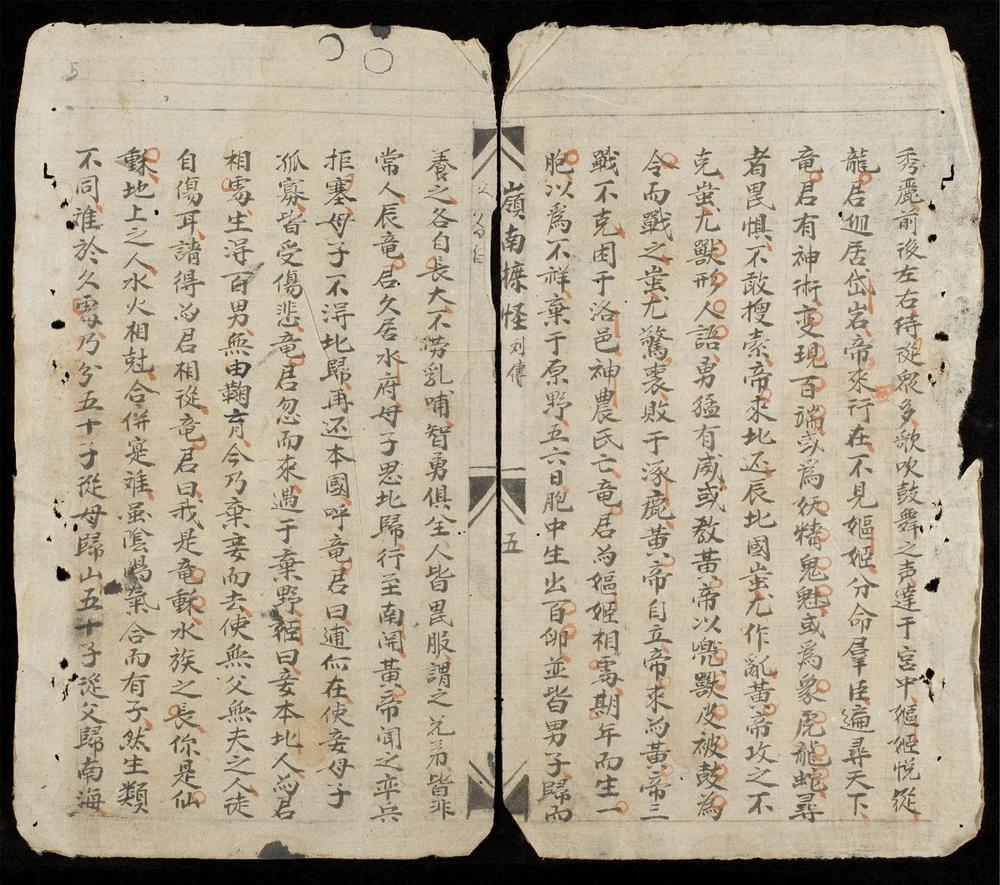 秀麗前後左右侍從衆多歌吹皷舞之声達于宮中嫗姬悅從
龍君廻居岱岩帝來行在不見嫗姬分命羣臣遍尋天下
竜君有神術变現百端或為妖精鬼魅或為象虎龍蛇尋
者畏惧不敢搜索帝來北还辰北國蚩尤作亂黃帝攻之不
克蚩尤獸形人語勇猛有威或教黃帝以兜獸皮被鼓為
令而戰之蚩尤驚衷敗于涿鹿黃帝自立帝來為黃帝三
戰不克困于洛邑神農氏亡竜君為嫗姬相處期年而生一
胞以為不祥棄于原野五六日胞中生出百卵並皆男子歸而
嶺南摭怪列傳
五
養之各自長大不勞乳哺智勇俱全人皆畏服謂之兄弟皆非
常人辰竜君久居水府母子思北歸行至南関黃帝聞之率兵
拒塞母子不淂北歸再还本國呼竜君曰逋尔在使妾母子
孤寡皆受傷悲竜君忽而來遇于棄野姬曰妾本北人為君
相處生淂百男無由鞠育今乃棄妾而去使無父無夫之人徒
自傷耳請得為君相從竜君曰我是竜種水族之長你是仙
種地上之人水火相尅合併寔难虽陰陽氣合而有子然生類
不同难於久處乃分五十子從母歸山五十子從父歸南海
5